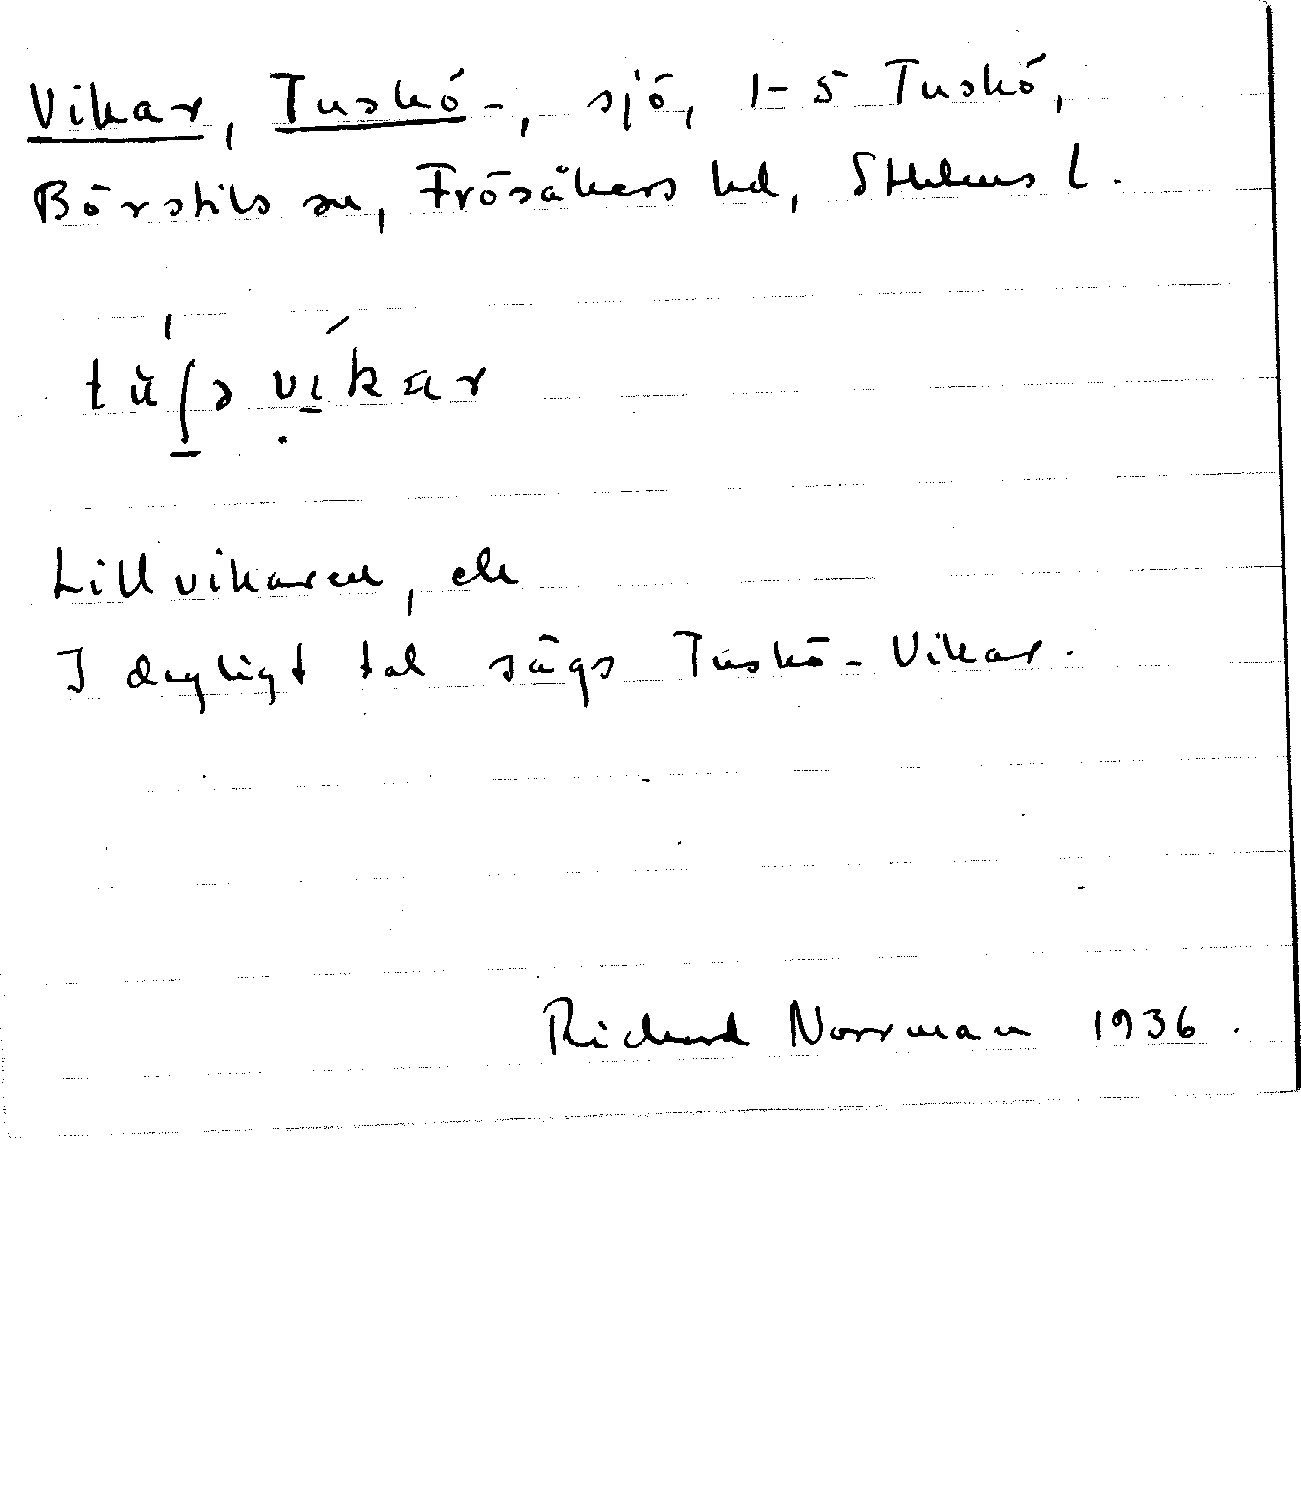 Vikar, Tuskö-, sjö, 1-5 Tuskö,
Börstils sn, Frösåkers hd, Sthlms l.
tu̇ʃə vɪkar
Lillvikaren, ek
I dagligt tal sägs Tuskö-Vikar.
Richard Norrman 1936.